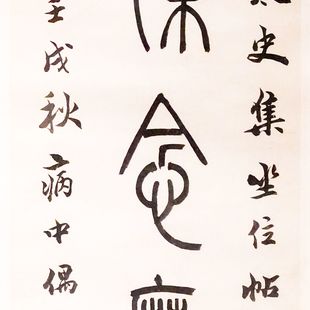 史集坐位帖
念
壬戌秋病中偶